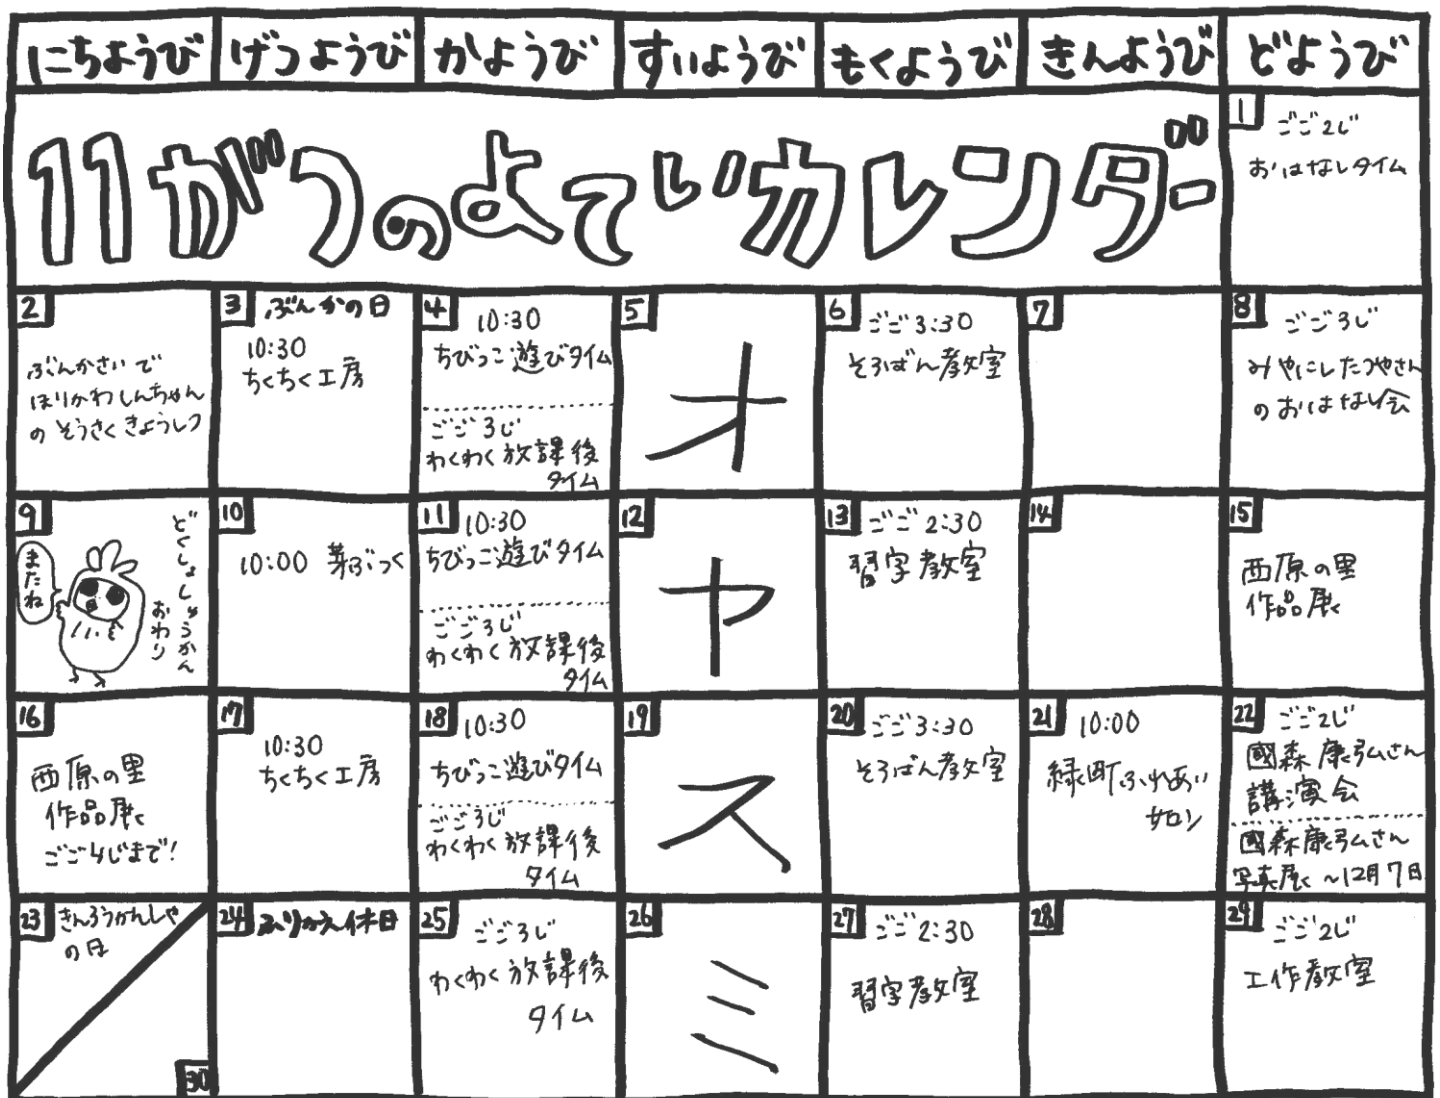 にちようび げつようび かようび すいようび もくようび きんようび どようび
11がつのよていカレンダー
1
ごご2じ
おはなしタイム
2
ぶんかさいで
ほりかわしんちゃん
のそうさくきょうしつ
3 ぶんかの日
10:30
ちくちく工房
4
10:30
ちびっこ遊びタイム
ごご3じ
わくわく放課後
タイム
5
オ
6
ごご3:30
そろばん教室
7
8
ごご3じ
みやにしたつやさん
のおはなし会
9
どくしょしゅうかん
おわり
またね
10
10:00 芽ぶっく
11
10:30
ちびっこ遊びタイム
ごご3じ
わくわく放課後
タイム
12
ヤ
13
ごご2:30
習字教室
14
15
西原の里
作品展
16
西原の里
作品展
ごご4じまで!
17
10:30
ちくちく工房
18
10:30
ちびっこ遊びタイム
ごご3じ
わくわく放課後
タイム
19
ス
20
ごご3:30
そろばん教室
21
10:00
緑町ふれあい
サロン
22
ごご2じ
國森康弘さん
講演会
國森康弘さん
写真展 ~12月7日
23
きんろうかんしゃ
の日
30
24 ふりかえ休日
25
ごご3じ
わくわく放課後
タイム
26
ミ
27
ごご2:30
習字教室
28
29
ごご2じ
工作教室